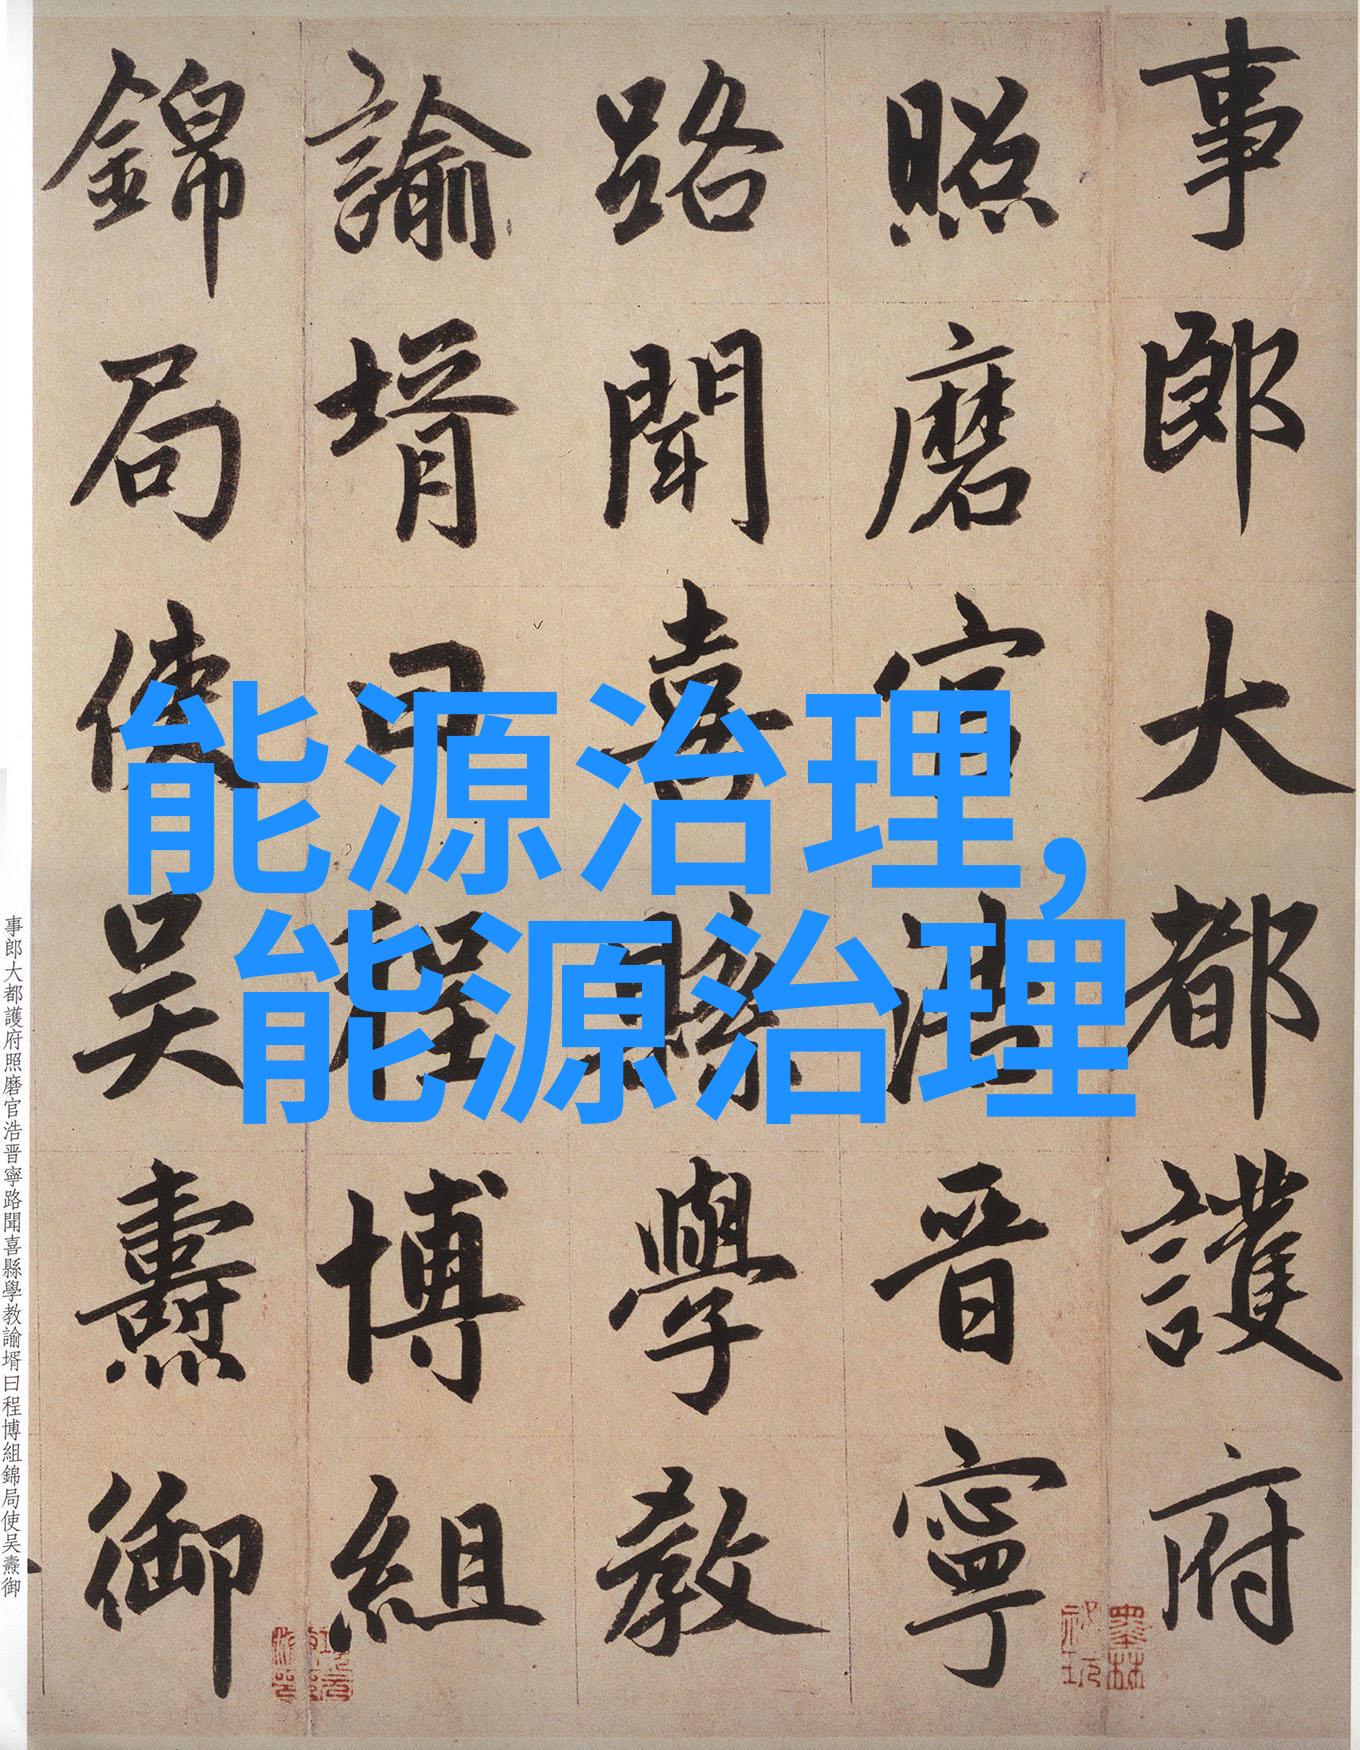 事郎大都護府
照磨官浩晋寧
路聞喜縣學教
諭壻曰程博組
錦局使吴燾御
能源治理，
能源治理
事郎大都護府照磨官浩晋寧路聞喜縣學教諭壻曰程博組錦局使吴燾御